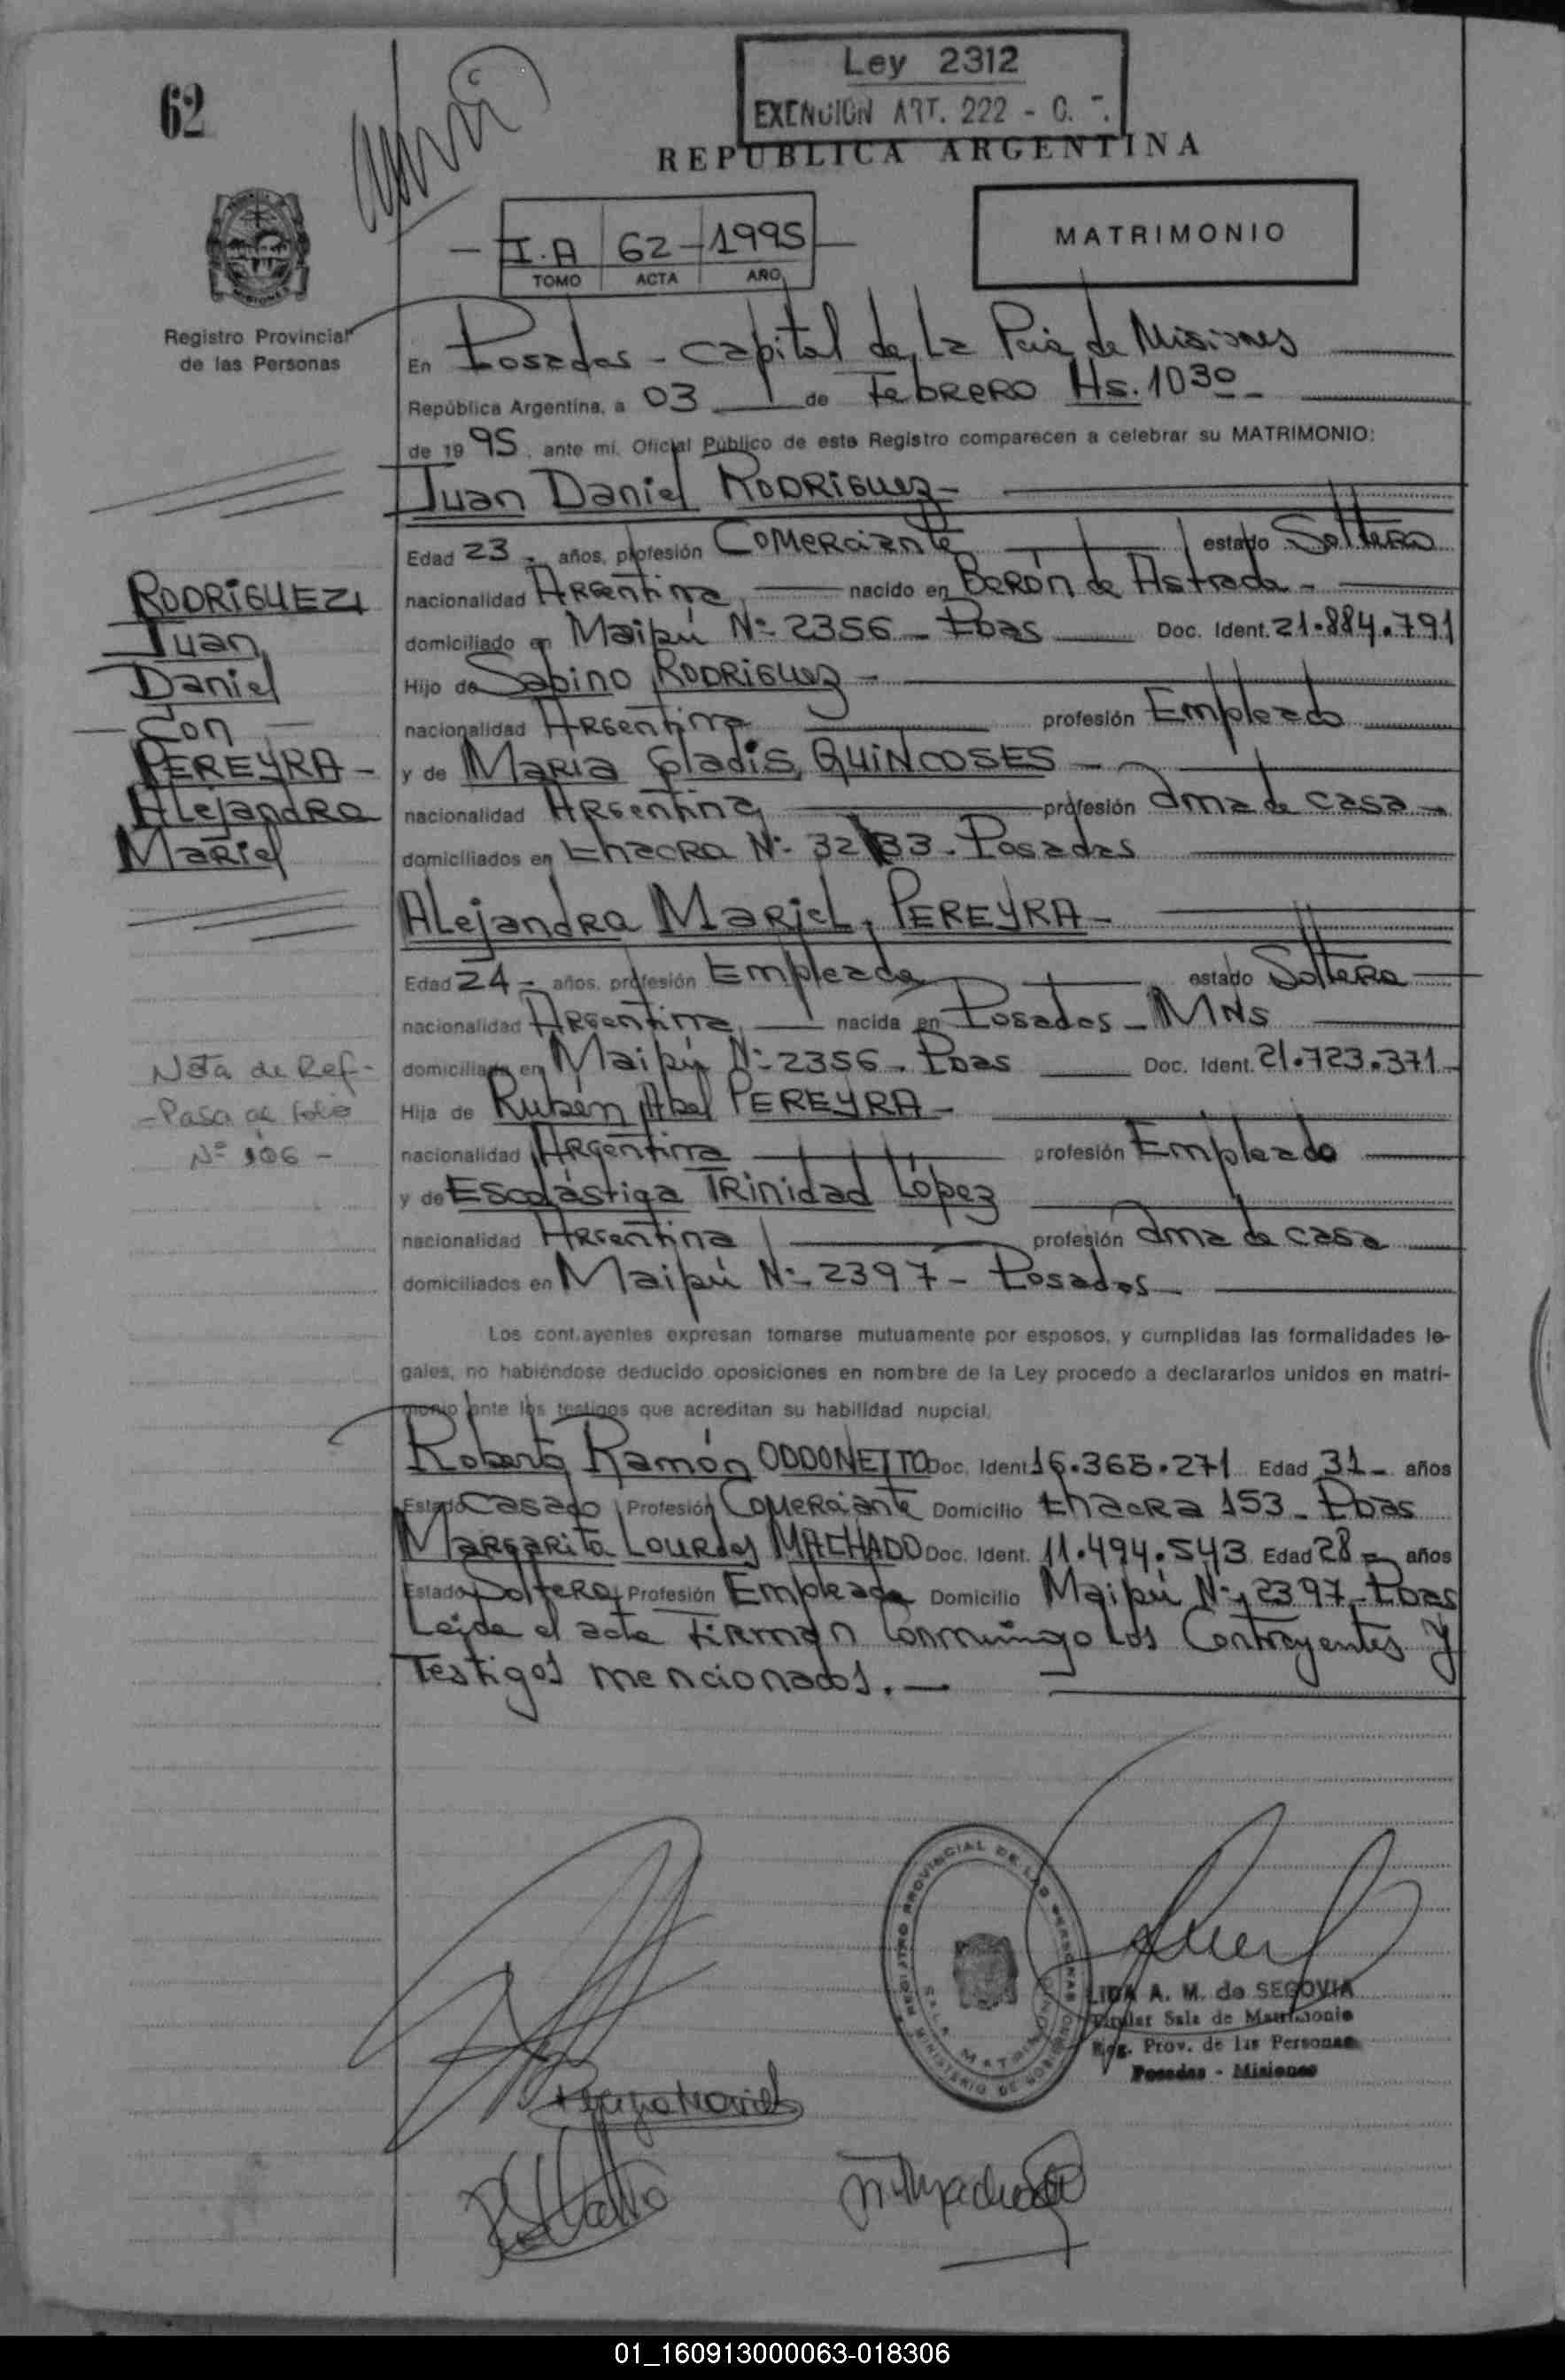 62
Ley 2312
EXENCION ART. 222 - C.
REPUBLICA ARGENTINA
I.A 62 - 1995
TOMO ACTA AÑO
MATRIMONIO
MISIONES
Registro Provincial
de las Personas
En Posadas - Capital de La Pcia de Misiones
República Argentina, a 03 de Febrero Hs. 1030
de 1995, ante mí, Oficial Público de este Registro comparecen a celebrar su MATRIMONIO:
Juan Daniel RODRIGUEZ -
Edad 23 - años, profesión Comerciante estado Soltero
nacionalidad Argentina nacido en Berón de Astrada -
domiciliado en Maipú Nº 2356 - Pdas Doc. Ident. 21.884.791
Hijo de Sabino RODRIGUEZ -
nacionalidad Argentina profesión Empleado
y de MARIA Gladis QUINCOSES -
nacionalidad Argentina profesión Ama de casa -
domiciliados en Chacra Nº 32/33 - Posadas
RODRIGUEZ
Juan
Daniel
- Con -
PEREYRA -
Alejandra
Mariel
Alejandra Mariel, PEREYRA -
Edad 24 - años, profesión Empleada estado Soltera
nacionalidad Argentina, nacida en Posadas - MNS
domiciliada en Maipú Nº 2356 - Pdas Doc. Ident. 21.723.371 -
Hija de Rubén Abel PEREYRA -
nacionalidad Argentina profesión Empleado
y de Escolástiga Trinidad López
nacionalidad Argentina profesión Ama de casa
domiciliados en Maipú Nº 2397 - Posadas
Nota de Ref -
- Pasa al folio
Nº 106 -
Los contrayentes expresan tomarse mutuamente por esposos, y cumplidas las formalidades le-
gales, no habiéndose deducido oposiciones en nombre de la Ley procedo a declararlos unidos en matri-
monio ante los testigos que acreditan su habilidad nupcial.
Roberto Ramón ODDONETTO Doc. Ident 16.365.271 Edad 31 - años
Estado Casado Profesión Comerciante Domicilio Chacra 153 - Pdas
Margarita Lourdes MACHADO Doc. Ident. 11.494.543 Edad 28 - años
Estado Soltera Profesión Empleada Domicilio Maipú Nº 2397 - Pdas
Leida el acta Firman Conmigo Los Contrayentes y
Testigos mencionados. -
REGISTRO PROVINCIAL DE LAS PERSONAS
MINISTERIO DE GOBIERNO
SALA MATRIMONIO
LIDA A. M. de SEGOVIA
Titular Sala de Matrimonio
Reg. Prov. de las Personas
Posadas - Misiones
01_160913000063-018306